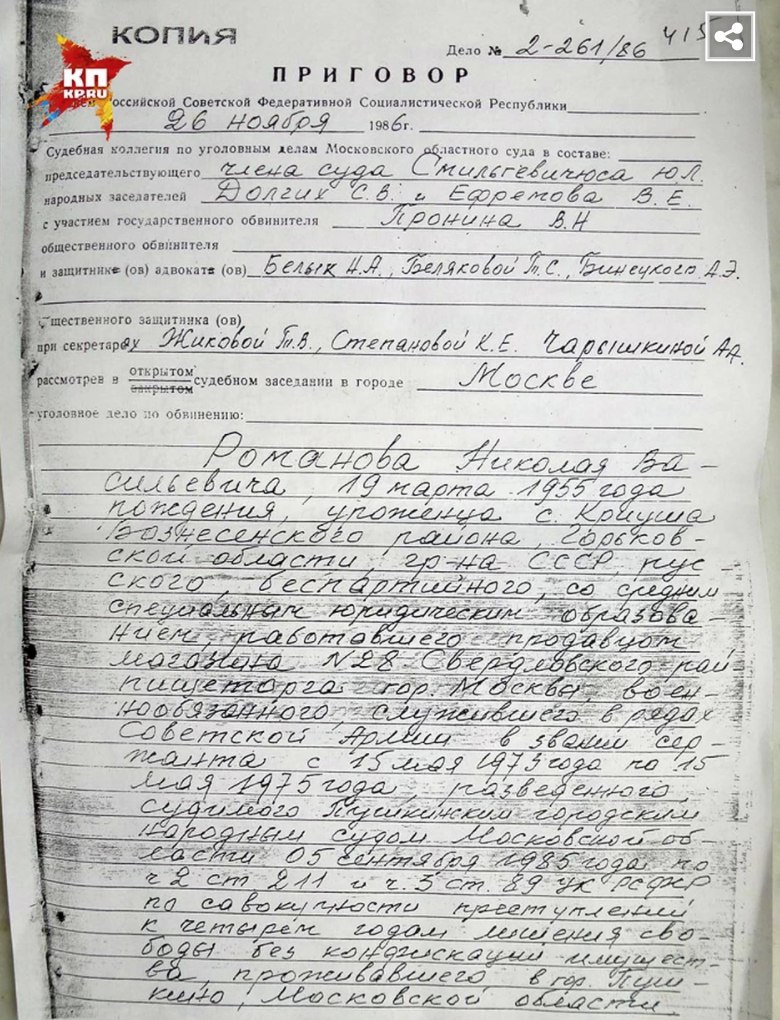 КОПИЯ
Дело № 2-261/86 415
КП
KP.RU
ПРИГОВОР
Российской Советской Федеративной Социалистической Республики
26 ноября 1986 г.
Судебная коллегия по уголовным делам Московского областного суда в составе:
председательствующего члена суда Смильгевичюса Ю.Л.
народных заседателей Долгих С.В. и Ефремова В.Е.
с участием государственного обвинителя Пронина В.Н
общественного обвинителя
и защитнике (ов) адвоката (ов) Белык Н.А., Беляковой Т.С., Бинецкого А.Э.
щественного защитника (ов)
при секретарях Жиковой Т.В., Степановой К.Е. Чарышкиной А.А.
рассмотрев в открытом закрытом судебном заседании в городе Москве
уголовное дело по обвинению:
Романова Николая Ва-
сильевича, 19 марта 1955 года
рождения, уроженца с. Криуша
Вознесенского района, Горьков-
ской области, гр-на СССР, рус-
ского, беспартийного, со средним
специальным юридическим образова-
нием, работавшего продавцом
магазина N28 Свердловского рай
пищеторга гор. Москвы, воен-
нообязанного, служившего в рядах
Советской Армии в звании сер-
жанта с 15 мая 1973 года по 15
мая 1975 года, разведенного,
судимого Пушкинским городским
народным судом Московской об-
ласти 05 сентября 1985 года по
ч 2 ст 211 и ч. 3 ст. 89 УК РСФСР
по савокупности преступлений
к четырем годам лишения сво-
боды без конфискации имущест-
ва, проживавшего в гор. Пуш-
кино, Московской области